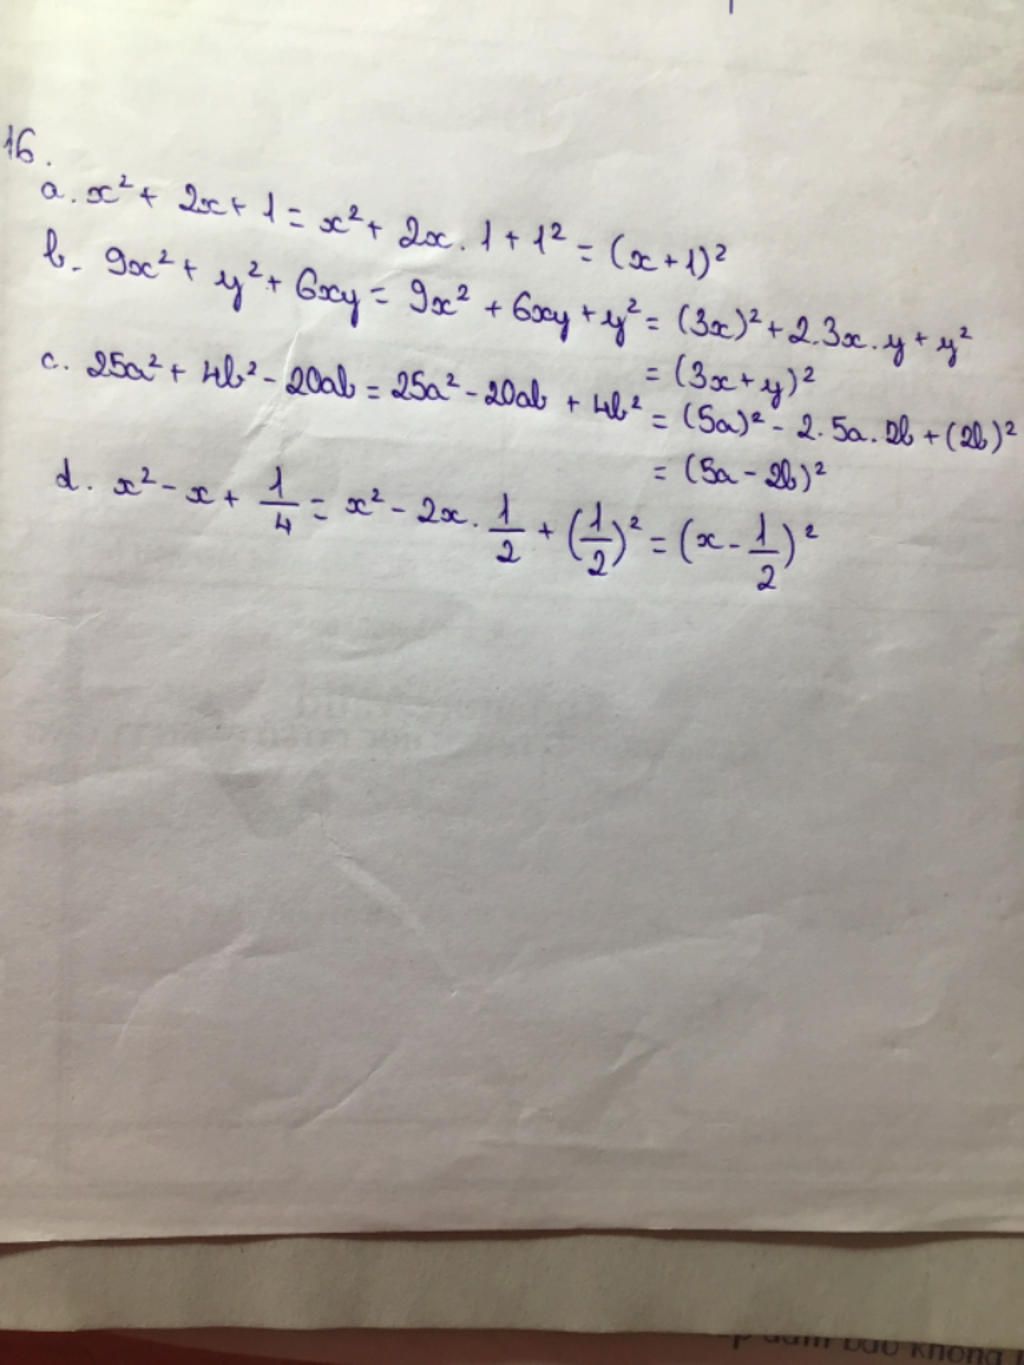 16.
a. x² + 2x + 1 = x² + 2x . 1 + 1² = (x + 1)²
b. 9x² + y² + 6xy = 9x² + 6xy + y² = (3x)² + 2.3x.y + y²
= (3x + y)²
c. 25a² + 4b² - 20ab = 25a² - 20ab + 4b² = (5a)² - 2.5a.2b + (2b)²
= (5a - 2b)²
d. x² - x + 1/4 = x² - 2x . 1/2 + (1/2)² = (x - 1/2)²
đảm bảo không